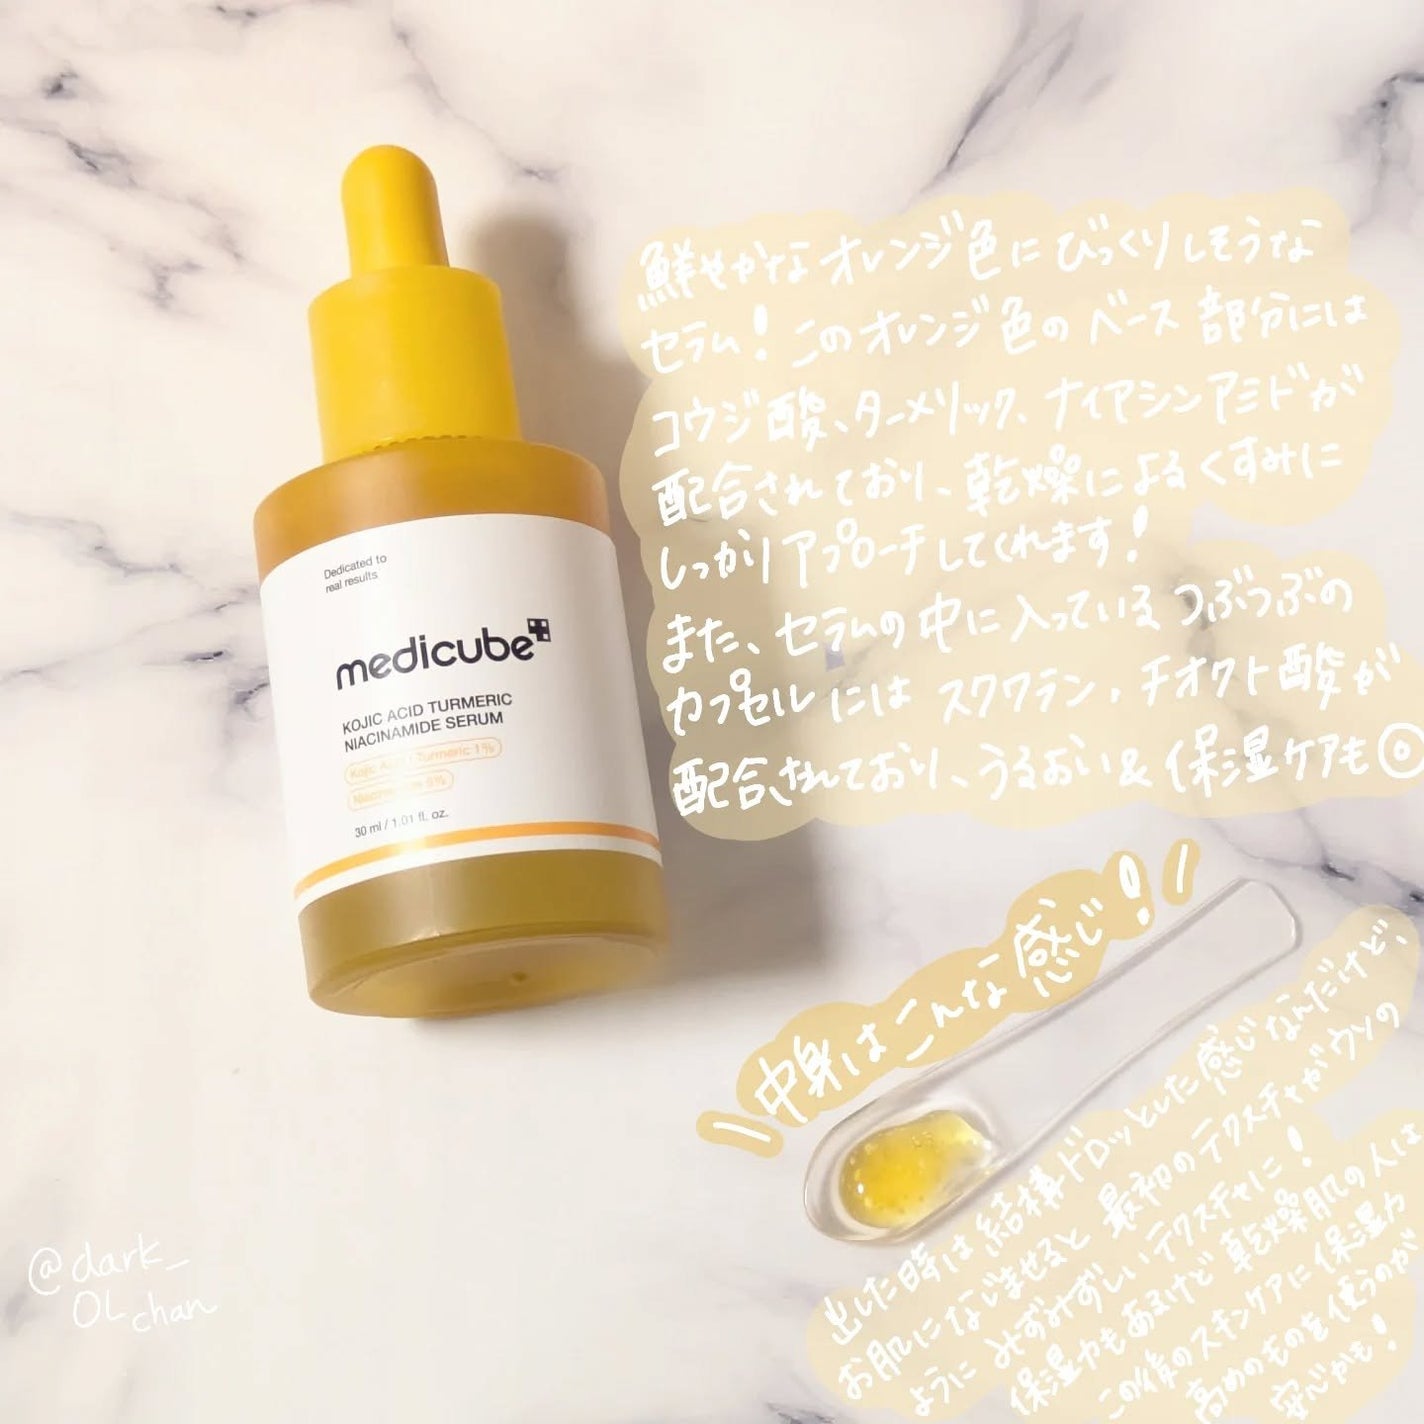 Dedicated to
real results
medicube
KOJIC ACID TURMERIC
NIACINAMIDE SERUM
Kojic Acid Turmeric 1%
Niacinamide 5%
30 ml / 1.01 fl. oz.
鮮やかなオレンジ色にびっくりしそうな
セラム!このオレンジ色のベース部分には
コウジ酸、ターメリック、ナイアシンアミドが
配合されており、乾燥によるくすみに
しっかりアプローチしてくれます!
また、セラムの中に入っているつぶつぶの
カプセルにはスクワラン、チオクト酸が
配合されており、うるおい&保湿ケアも◎
\中身はこんな感じ!/
出した時は結構ドロッとした感じなんだけど、
お肌になじませると最初のテクスチャがウソの
ようにみずみずしいテクスチャに!
保湿力もあるけど乾燥肌の人は
この後のスキンケアに保湿力
高めのものを使うのが
安心かも!
@dark_
OLchan